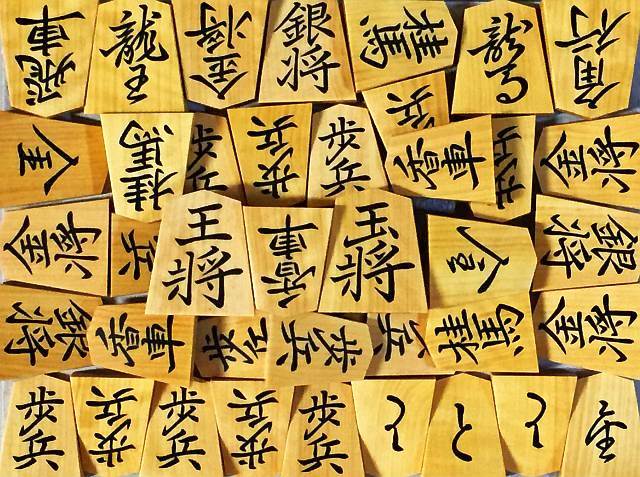 飛車
龍王
金将
銀将
桂馬
歩兵
龍馬
角行
全
桂馬
歩兵
歩兵
歩兵
香車
歩兵
金将
金将
兵
王将
香車
玉将
銀将
銀将
香車
歩兵
歩兵
兵
桂馬
金将
歩兵
歩兵
歩兵
歩兵
歩兵
と
と
と